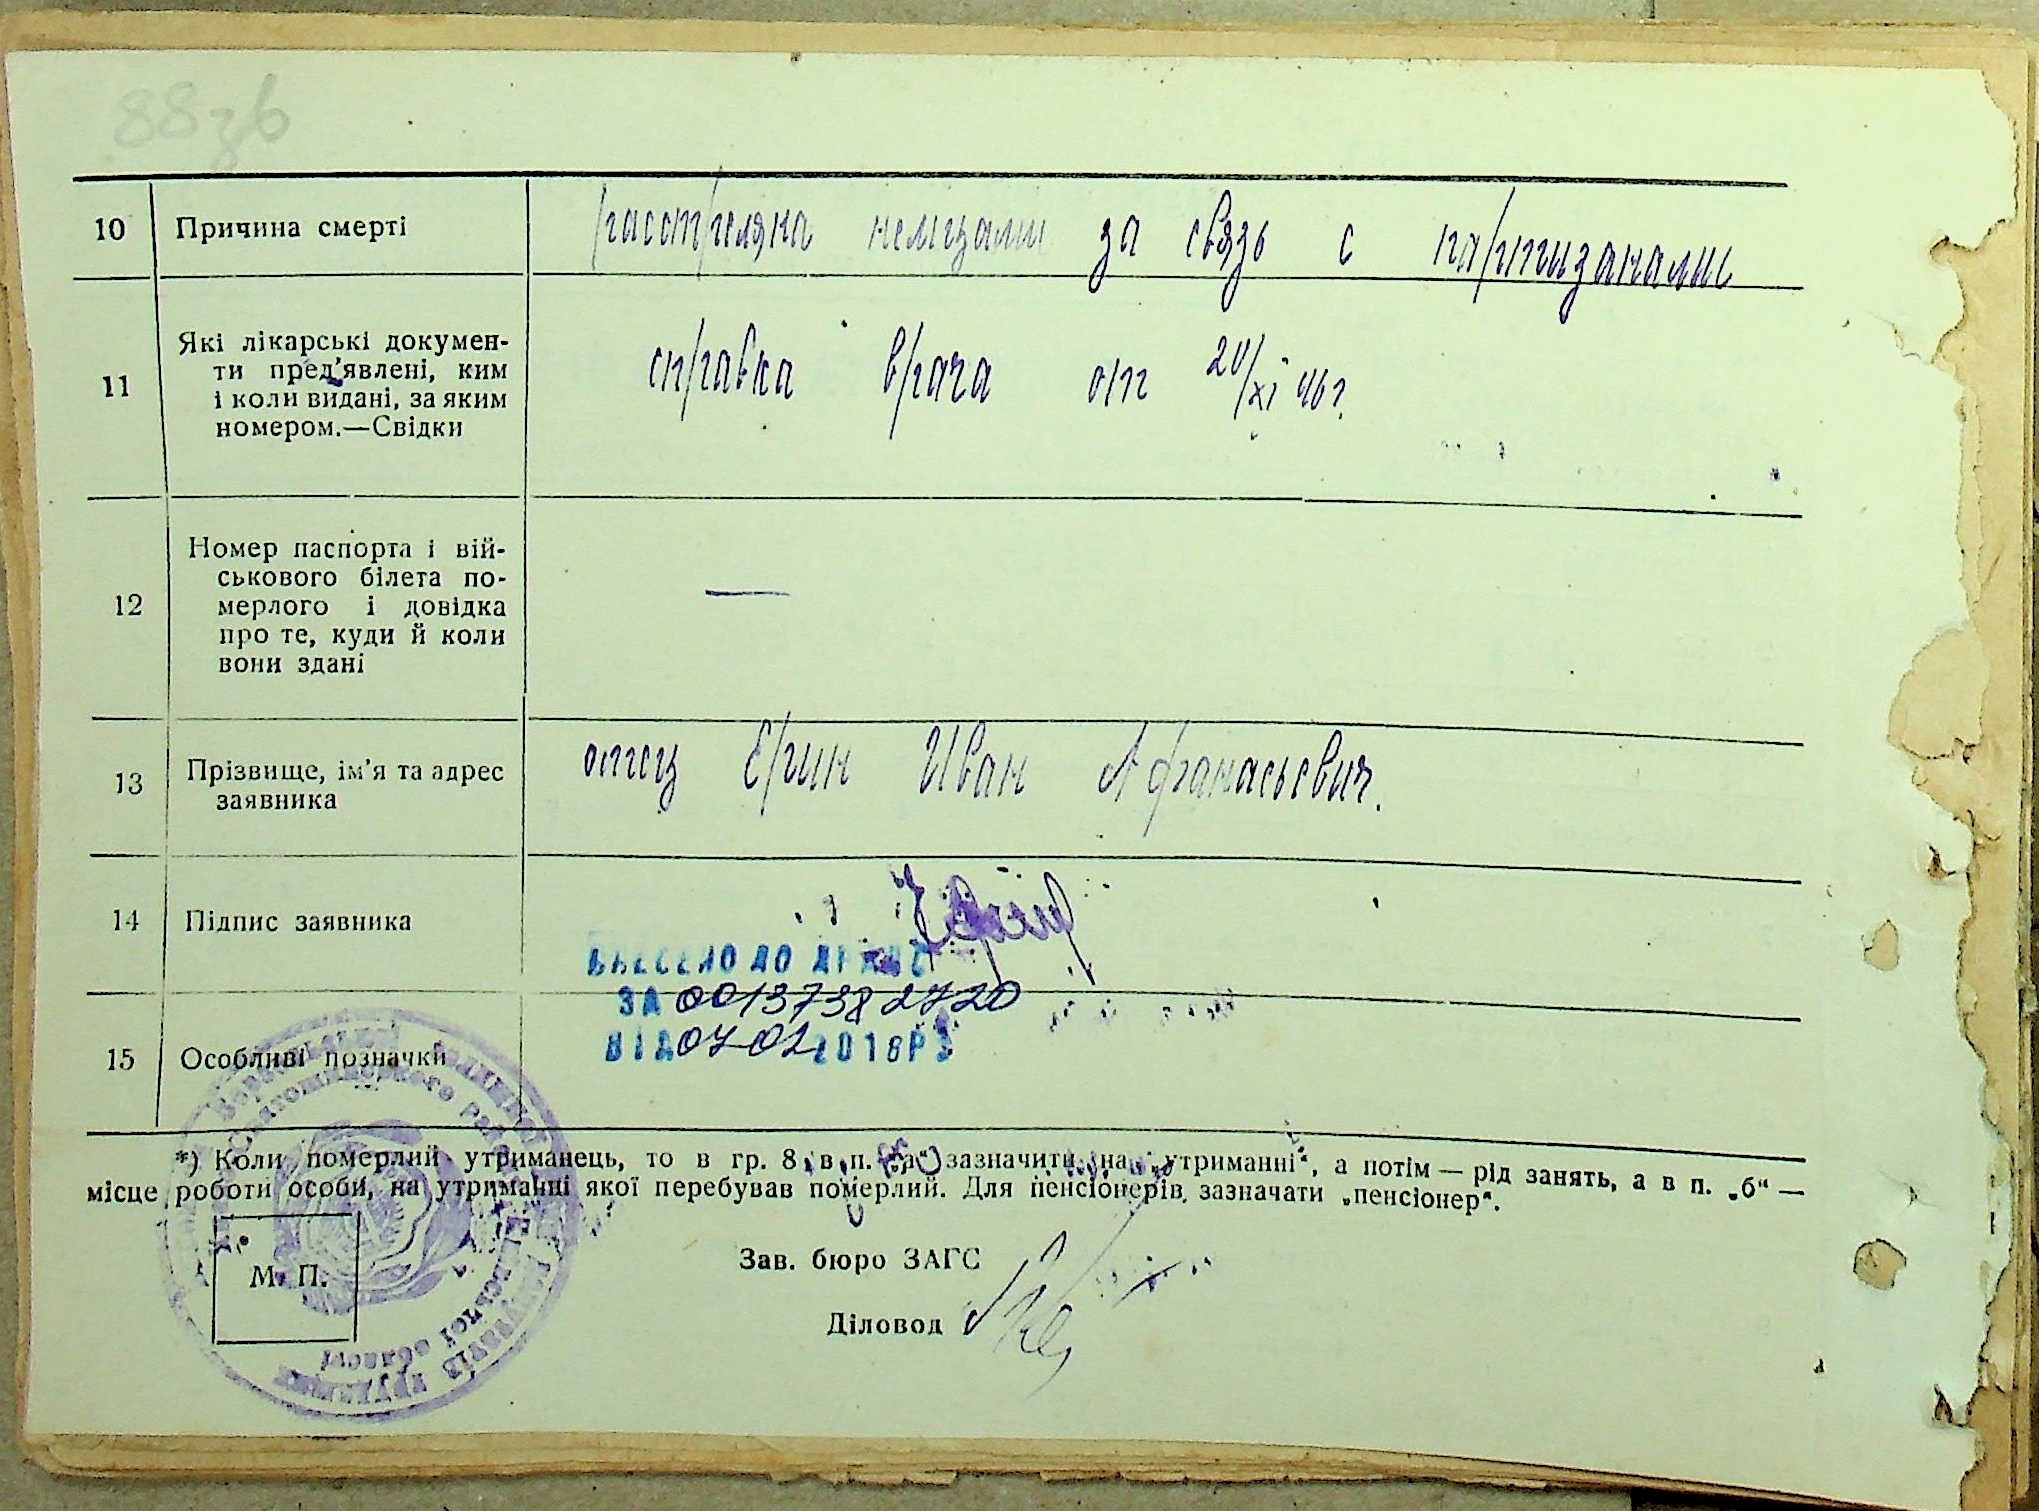 88зв
10 Причина смерті расстреляна немцами за связь с партизанами
11 Які лікарські докумен-
ти пред'явлені, ким
і коли видані, за яким
номером.—Свідки
справка врача от 20/XI 46 г.
12 Номер паспорта і вій-
ськового білета по-
мерлого і довідка
про те, куди й коли
вони здані
—
13 Прізвище, ім'я та адрес
заявника
отец Ерин Иван Афанасьевич.
14 Підпис заявника
ВНЕСЕНО ДО ДРАЦС
ЗА 00137382720
ВІД 07 02 2018Р
15 Особливі позначки
*) Коли померлий утриманець, то в гр. 8 в п. „а“ зазначити „на утриманні“, а потім — рід занять, а в п. „б“ —
місце роботи особи, на утриманні якої перебував померлий. Для пенсіонерів зазначати „пенсіонер“.
М. П.
Зав. бюро ЗАГС
Діловод
області